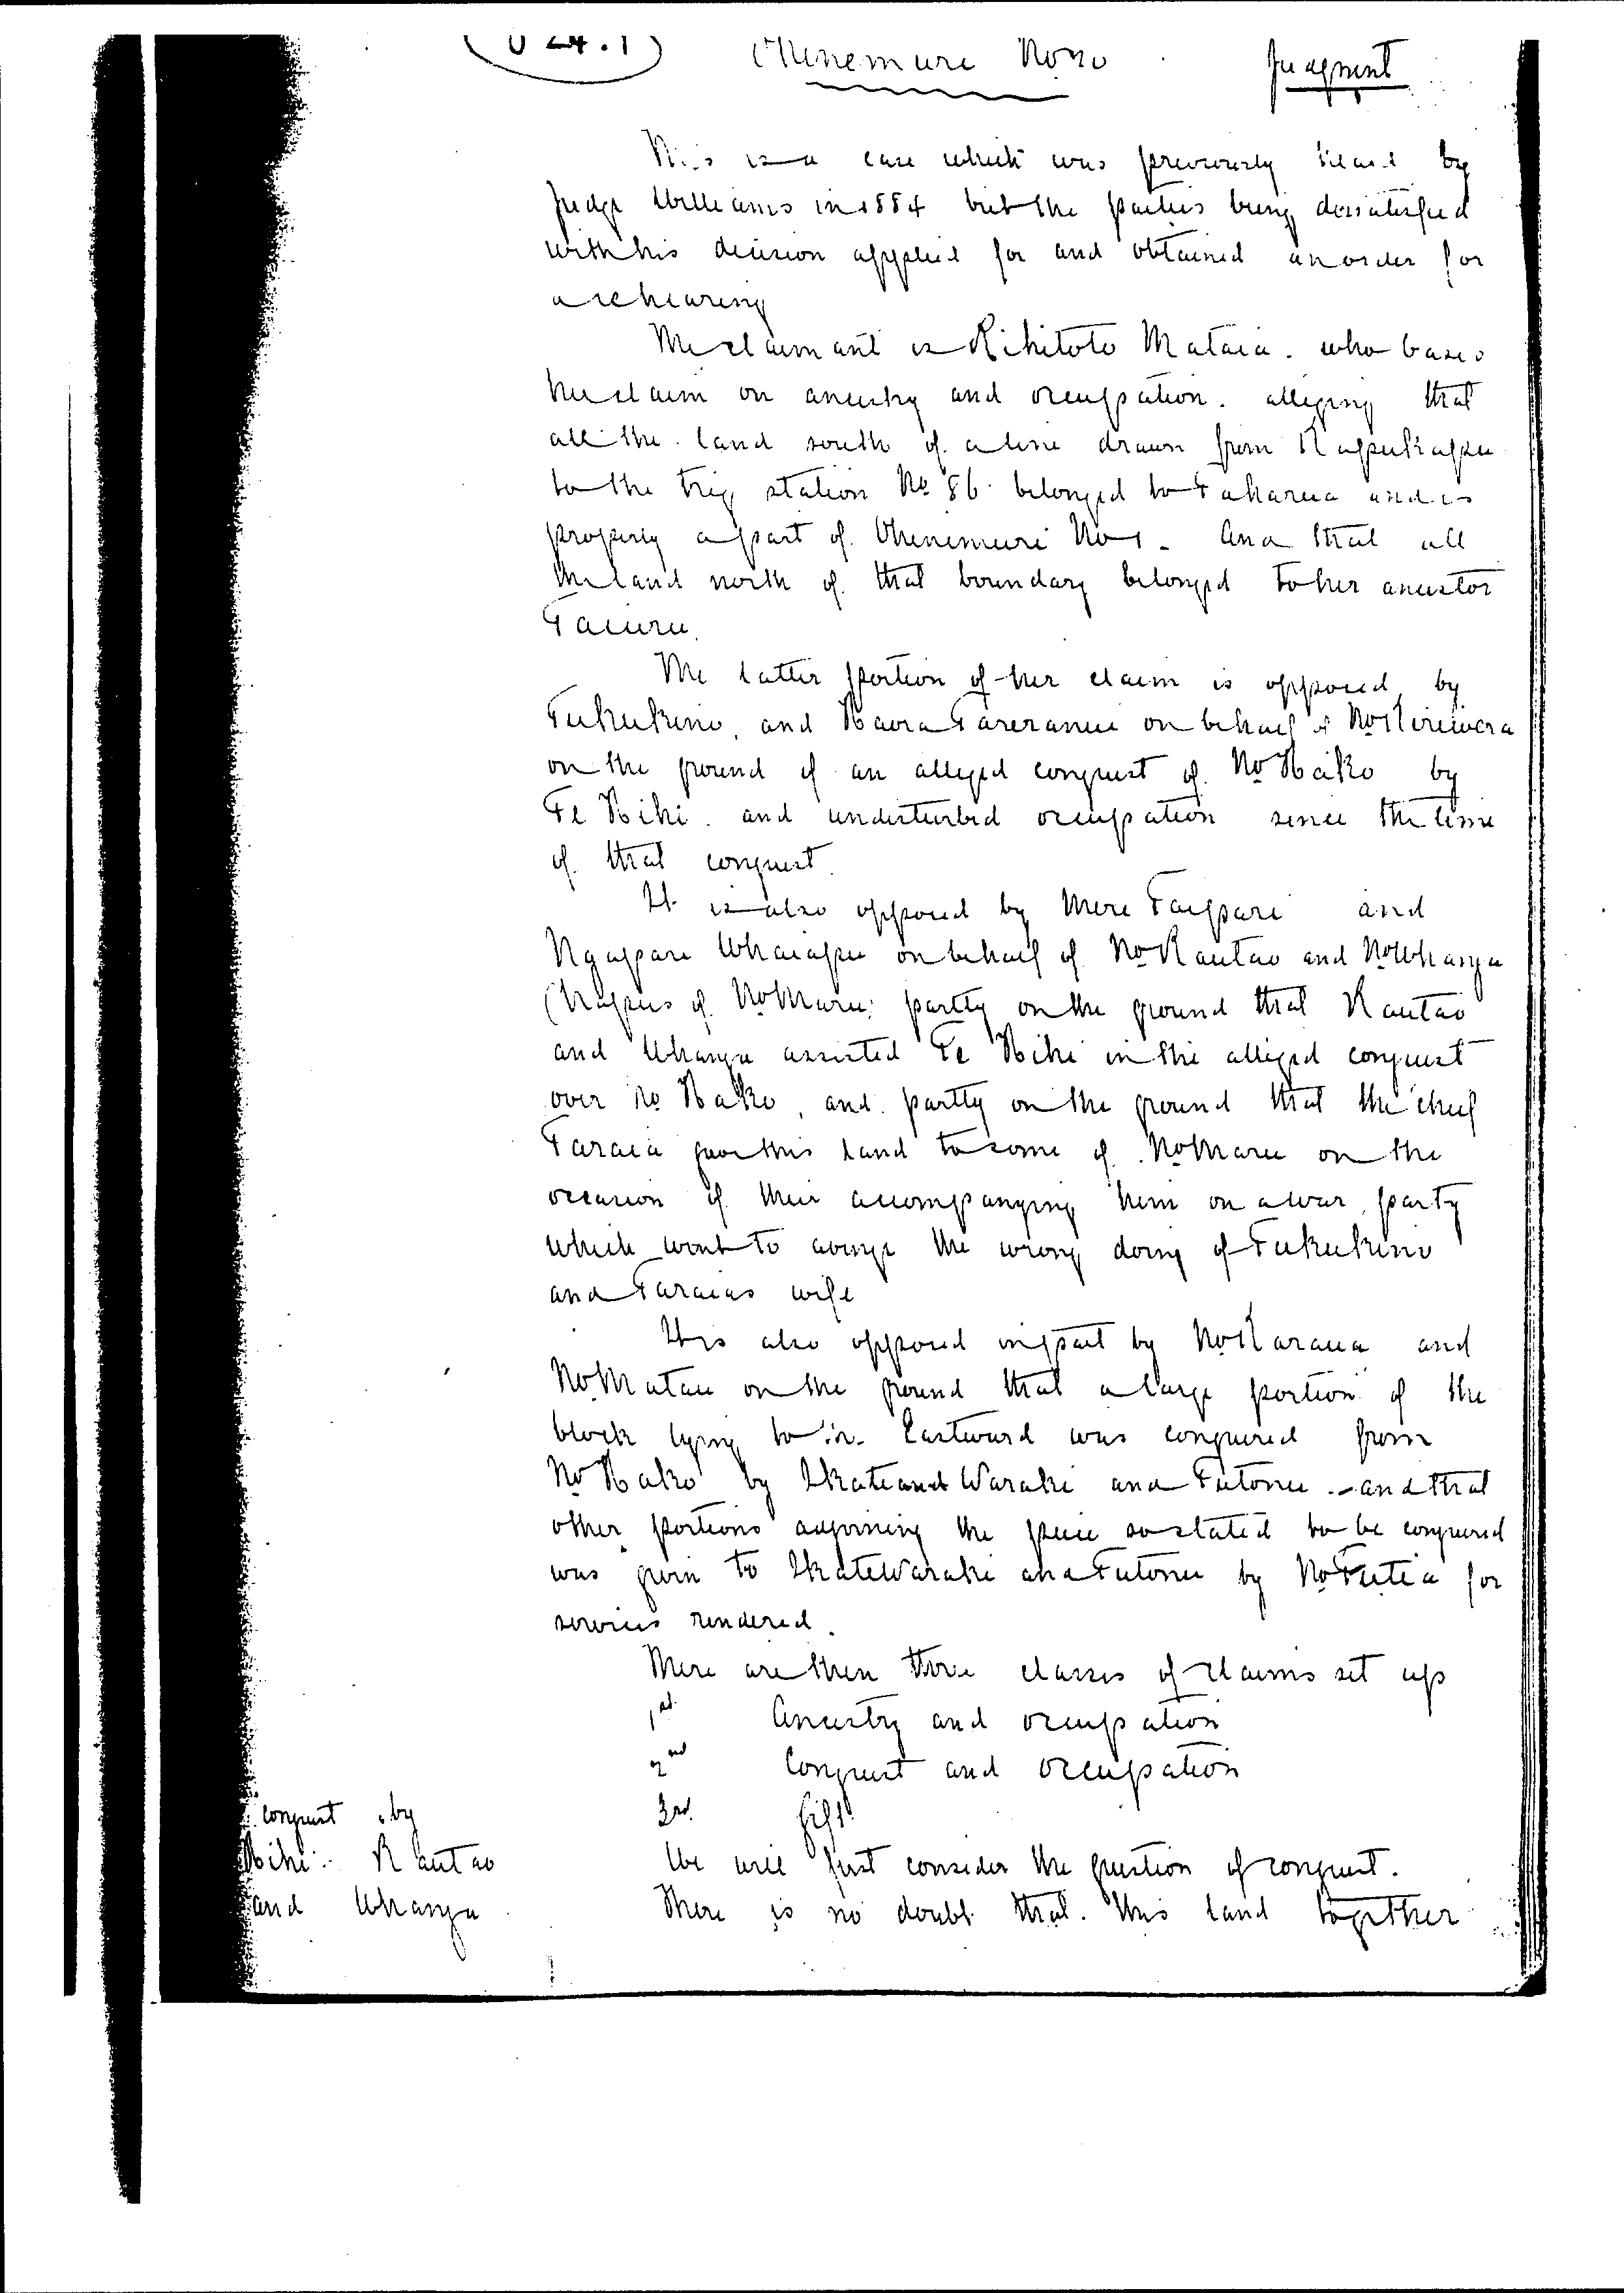 Ohinemuri No 20 Judgment
This is a case which was previously heard by
Judge Williams in 1884 but the parties being dissatisfied
with his decision applied for and obtained an order for
a rehearing
The claimant is Rihitoto Mataia. who bases
her claim on ancestry and occupation. alleging that
all the land south of a line drawn from Kapukapu
to the trig station No 86 belonged to Taharua and is
properly a part of Ohinemuri No 1. And that all
the land north of that boundary belonged to her ancestor
Taiuru.
The latter portion of her claim is opposed by
Tukukino, and Haora Tareranui on behalf of No Kiriwera
on the ground of an alleged conquest of No Hako by
Te Hihi. and undisturbed occupation since the time
of that conquest.
It is also opposed by Mere Taipari and
Ngapari Whaiapu on behalf of No Rautao and No Whanga
(hapus of No Maru; partly on the ground that Rautao
and Whanga assisted Te Hihi in the alleged conquest
over No Hako, and partly on the ground that the chief
Taraia gave this land to some of No Maru on the
occasion of their accompanying him on a war party
which went to avenge the wrong doing of Tukukino
and Taraias wife
It is also opposed in part by No Karaua and
No Matau on the ground that a large portion of the
block lying to the Eastward was conquered from
No Hako by and Tutonu. - and that
other portions adjoining the piece so stated to be conquered
was given to and Tutonu by No Tutea for
services rendered.
There are then three classes of claims set up
1st Ancestry and occupation
2nd Conquest and occupation
3rd Gift
conquest by
Hihi Rautao
and Whanga
We will first consider the question of conquest.
There is no doubt that this land together